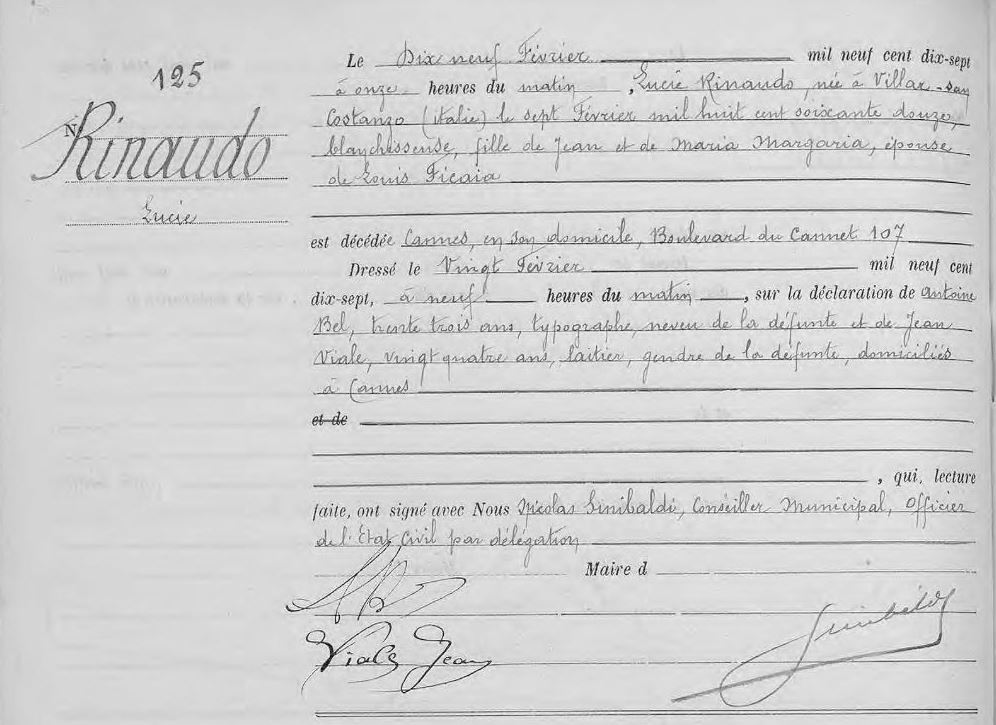 125
N
Rinaudo
Lucie
Le Dix neuf Février mil neuf cent dix-sept
à onze heures du matin, Lucie Rinaudo, née à Villar-San
Costanzo (italie) le sept Février mil huit cent soixante douze,
blanchisseuse, fille de Jean et de Maria Margaria, épouse
de Louis Ficaia
est décédée Cannes, en son domicile, Boulevard du Cannet 107
Dressé le Vingt Février mil neuf cent
dix-sept, à neuf heures du matin, sur la déclaration de Antoine
Bel, trente trois ans, typographe, neveu de la défunte et de Jean
Viale, vingt quatre ans, laitier, gendre de la défunte, domiciliés
à Cannes
et de
, qui, lecture
faite, ont signé avec Nous Nicolas Sinibaldi, Conseiller Municipal, Officier
de l'Etat Civil par délégation
Maire d
Viale Jean
Sinibaldi